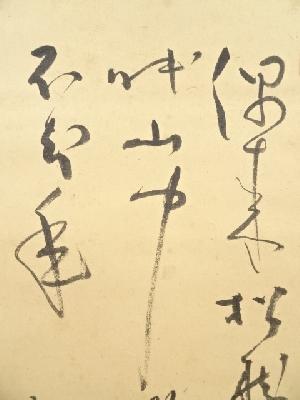 偶来松樹
眠山中
不知年